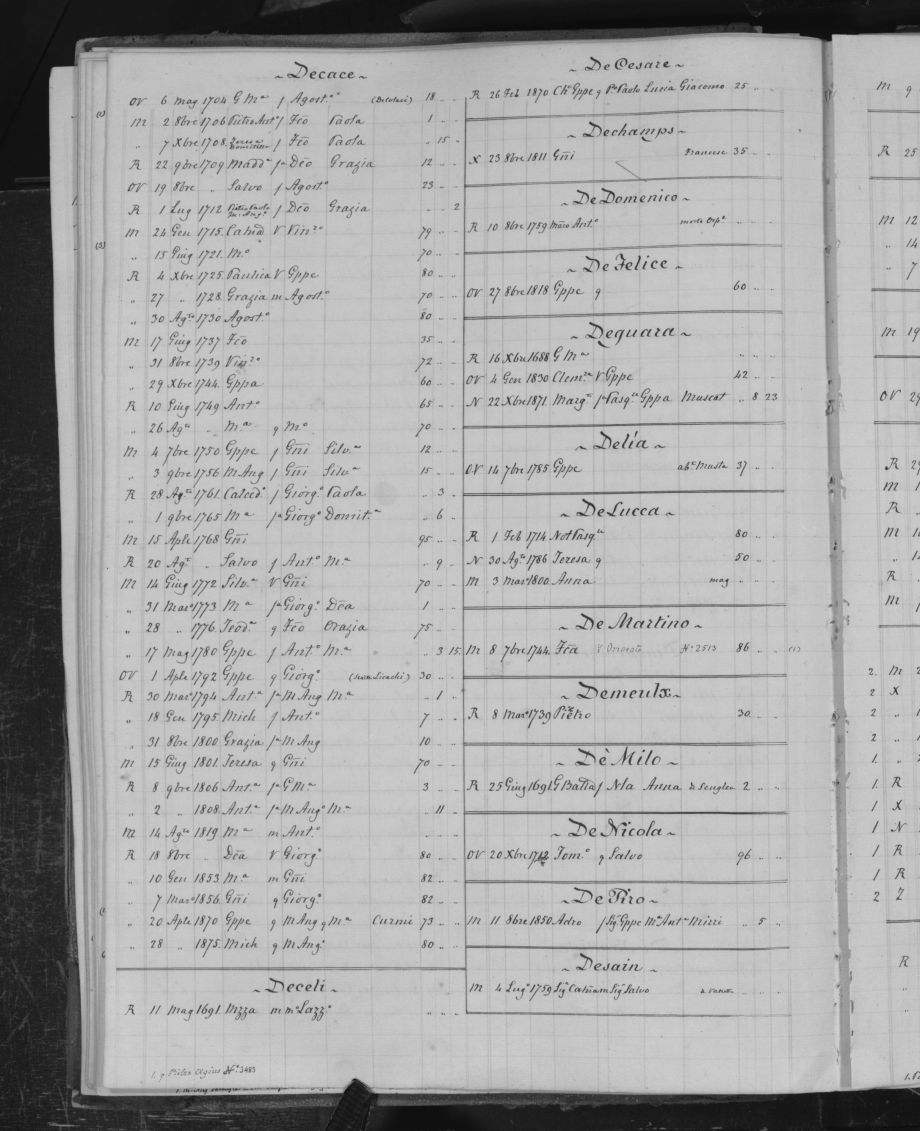 ~ Decace ~
OV 6 mag 1704 G Mª f Agost.º (Belolari) 18 .. ..
M 2 8bre 1706 Pietro Ant.º f Fco Paola 1 .. ..
.. 7 Xbre 1708 f Fco Paola .. 15 ..
R 22 9bre 1709 Madd.ª fª Dco Grazia 12 .. ..
OV 19 8bre .. Salvo f Agost.º 23 .. ..
R 1 Lug 1712 Pietro Paolo M. Ang.º f Dco Grazia .. .. 2
M 24 Gen 1715 Catna V Vinzº 79 .. ..
.. 15 Giug 1721 M.º 70 .. ..
R 4 Xbre 1725 Paulica V Gppe 80 .. ..
.. 27 .. 1728 Grazia m Agost.º 70 .. ..
.. 30 Ag.to 1730 Agost.º 80 .. ..
M 17 Giug 1737 Fco 35 .. ..
.. 31 8bre 1739 Vinzº 72 .. ..
.. 29 Xbre 1744 Gppa 60 .. ..
R 10 Giug 1749 Ant.º 65 .. ..
.. 26 Ag.to .. M.ª g M.º 70 .. ..
M 4 7bre 1750 Gppe f Gni Silv.ª 12 .. ..
.. 3 9bre 1756 M Ang f Gni Silv.ª 15 .. ..
R 28 Ag.to 1761 Calced.º f Giorg.º Paola .. 3 ..
.. 1 9bre 1765 M.ª fª Giorg.º Domit.ª .. 6 ..
M 15 Aple 1768 Gni 95 .. ..
R 20 Ag.to .. Salvo f Ant.º M.ª .. 9 ..
M 14 Giug 1772 Silv.ª V Gni 70 .. ..
.. 31 Marº 1773 M.ª fª Giorg.º Dca 1 .. ..
.. 28 .. 1776 Teod.º g Fco Grazia 75 .. ..
.. 17 mag 1780 Gppe f Ant.º M.ª .. 3 15
OV 1 Aple 1792 Gppe g Giorg.º 30 .. ..
R 30 Marº 1794 Ant.ª fª M Ang M.ª .. 1 ..
.. 18 Gen 1795 Mich f Ant.º 7 .. ..
.. 31 8bre 1800 Grazia fª M Ang 10 .. ..
M 15 Giug 1801 Teresa g Gni 70 .. ..
R 8 9bre 1806 Ant.ª fª G M.ª 3 .. ..
.. 2 .. 1808 Ant.ª fª M Ang.º M.ª .. 11 ..
M 14 Ag.to 1819 M.ª m Ant.º .. .. ..
R 18 8bre .. Dca V Giorg.º 80 .. ..
.. 10 Gen 1853 M.ª m Gni 82 .. ..
.. 7 Marº 1856 Gni g Giorg.º 82 .. ..
.. 20 Aple 1870 Gppe g M Ang g M.ª Curmi 73 .. ..
.. 28 .. 1875 Mich g M Ang.º 80 .. ..
~ Deceli ~
R 11 Mag 1691 Mzza m mº Lazzº .. .. ..
1. g Pietro Agius Nº 3483
~ De Cesare ~
R 26 Feb 1870 Ch.º Gppe g Pº Paolo Lucia Giacomo 25 .. ..
~ Dechamps ~
X 23 8bre 1811 Gni Francese 35 .. ..
~ De Domenico ~
R 10 8bre 1759 Mro Ant.º morto Osp.º .. .. ..
~ De Felice ~
OV 27 8bre 1818 Gppe g 60 .. ..
~ Deguara ~
R 16 Xbre 1688 G M.ª .. .. ..
OV 4 Gen 1830 Clem.za V Gppe 42 .. ..
N 22 Xbre 1871 Marg.ª fª Pasq.le Gppa Muscat .. 8 23
~ Delia ~
OV 14 7bre 1785 Gppe ab.e Musta 37 .. ..
~ De Lucca ~
R 1 Feb 1714 Not Pasq.le 80 .. ..
N 30 Ag.to 1786 Teresa g 50 .. ..
M 3 marº 1800 Anna mag .. .. ..
~ De Martino ~
M 8 7bre 1744 Fca V Oreste Nº 2513 86 .. .. (1)
~ Demeulx ~
R 8 Marº 1739 Pietro 30 .. ..
~ De Milo ~
R 25 Giug 1691 G Batta f Nla Anna da Senglea 2 .. ..
~ De Nicola ~
OV 20 Xbre 1712 Tom.º g Salvo 96 .. ..
~ De Piro ~
M 11 8bre 1850 Adro f Sig Gppe Mª Ant.ª Mizzi .. 5 ..
~ Desain ~
M 4 Lugº 1759 Sig Catna m Sig Salvo .. .. ..
M 9
R 25
M 12
.. 14
.. 7
M 19
OV 29
R 29
M 1
R
M 10
R
M
2. M 2
2 X
2 ..
2 ..
1 ..
1 R
1 X
1 N
1 R
1 R
2 Z
R